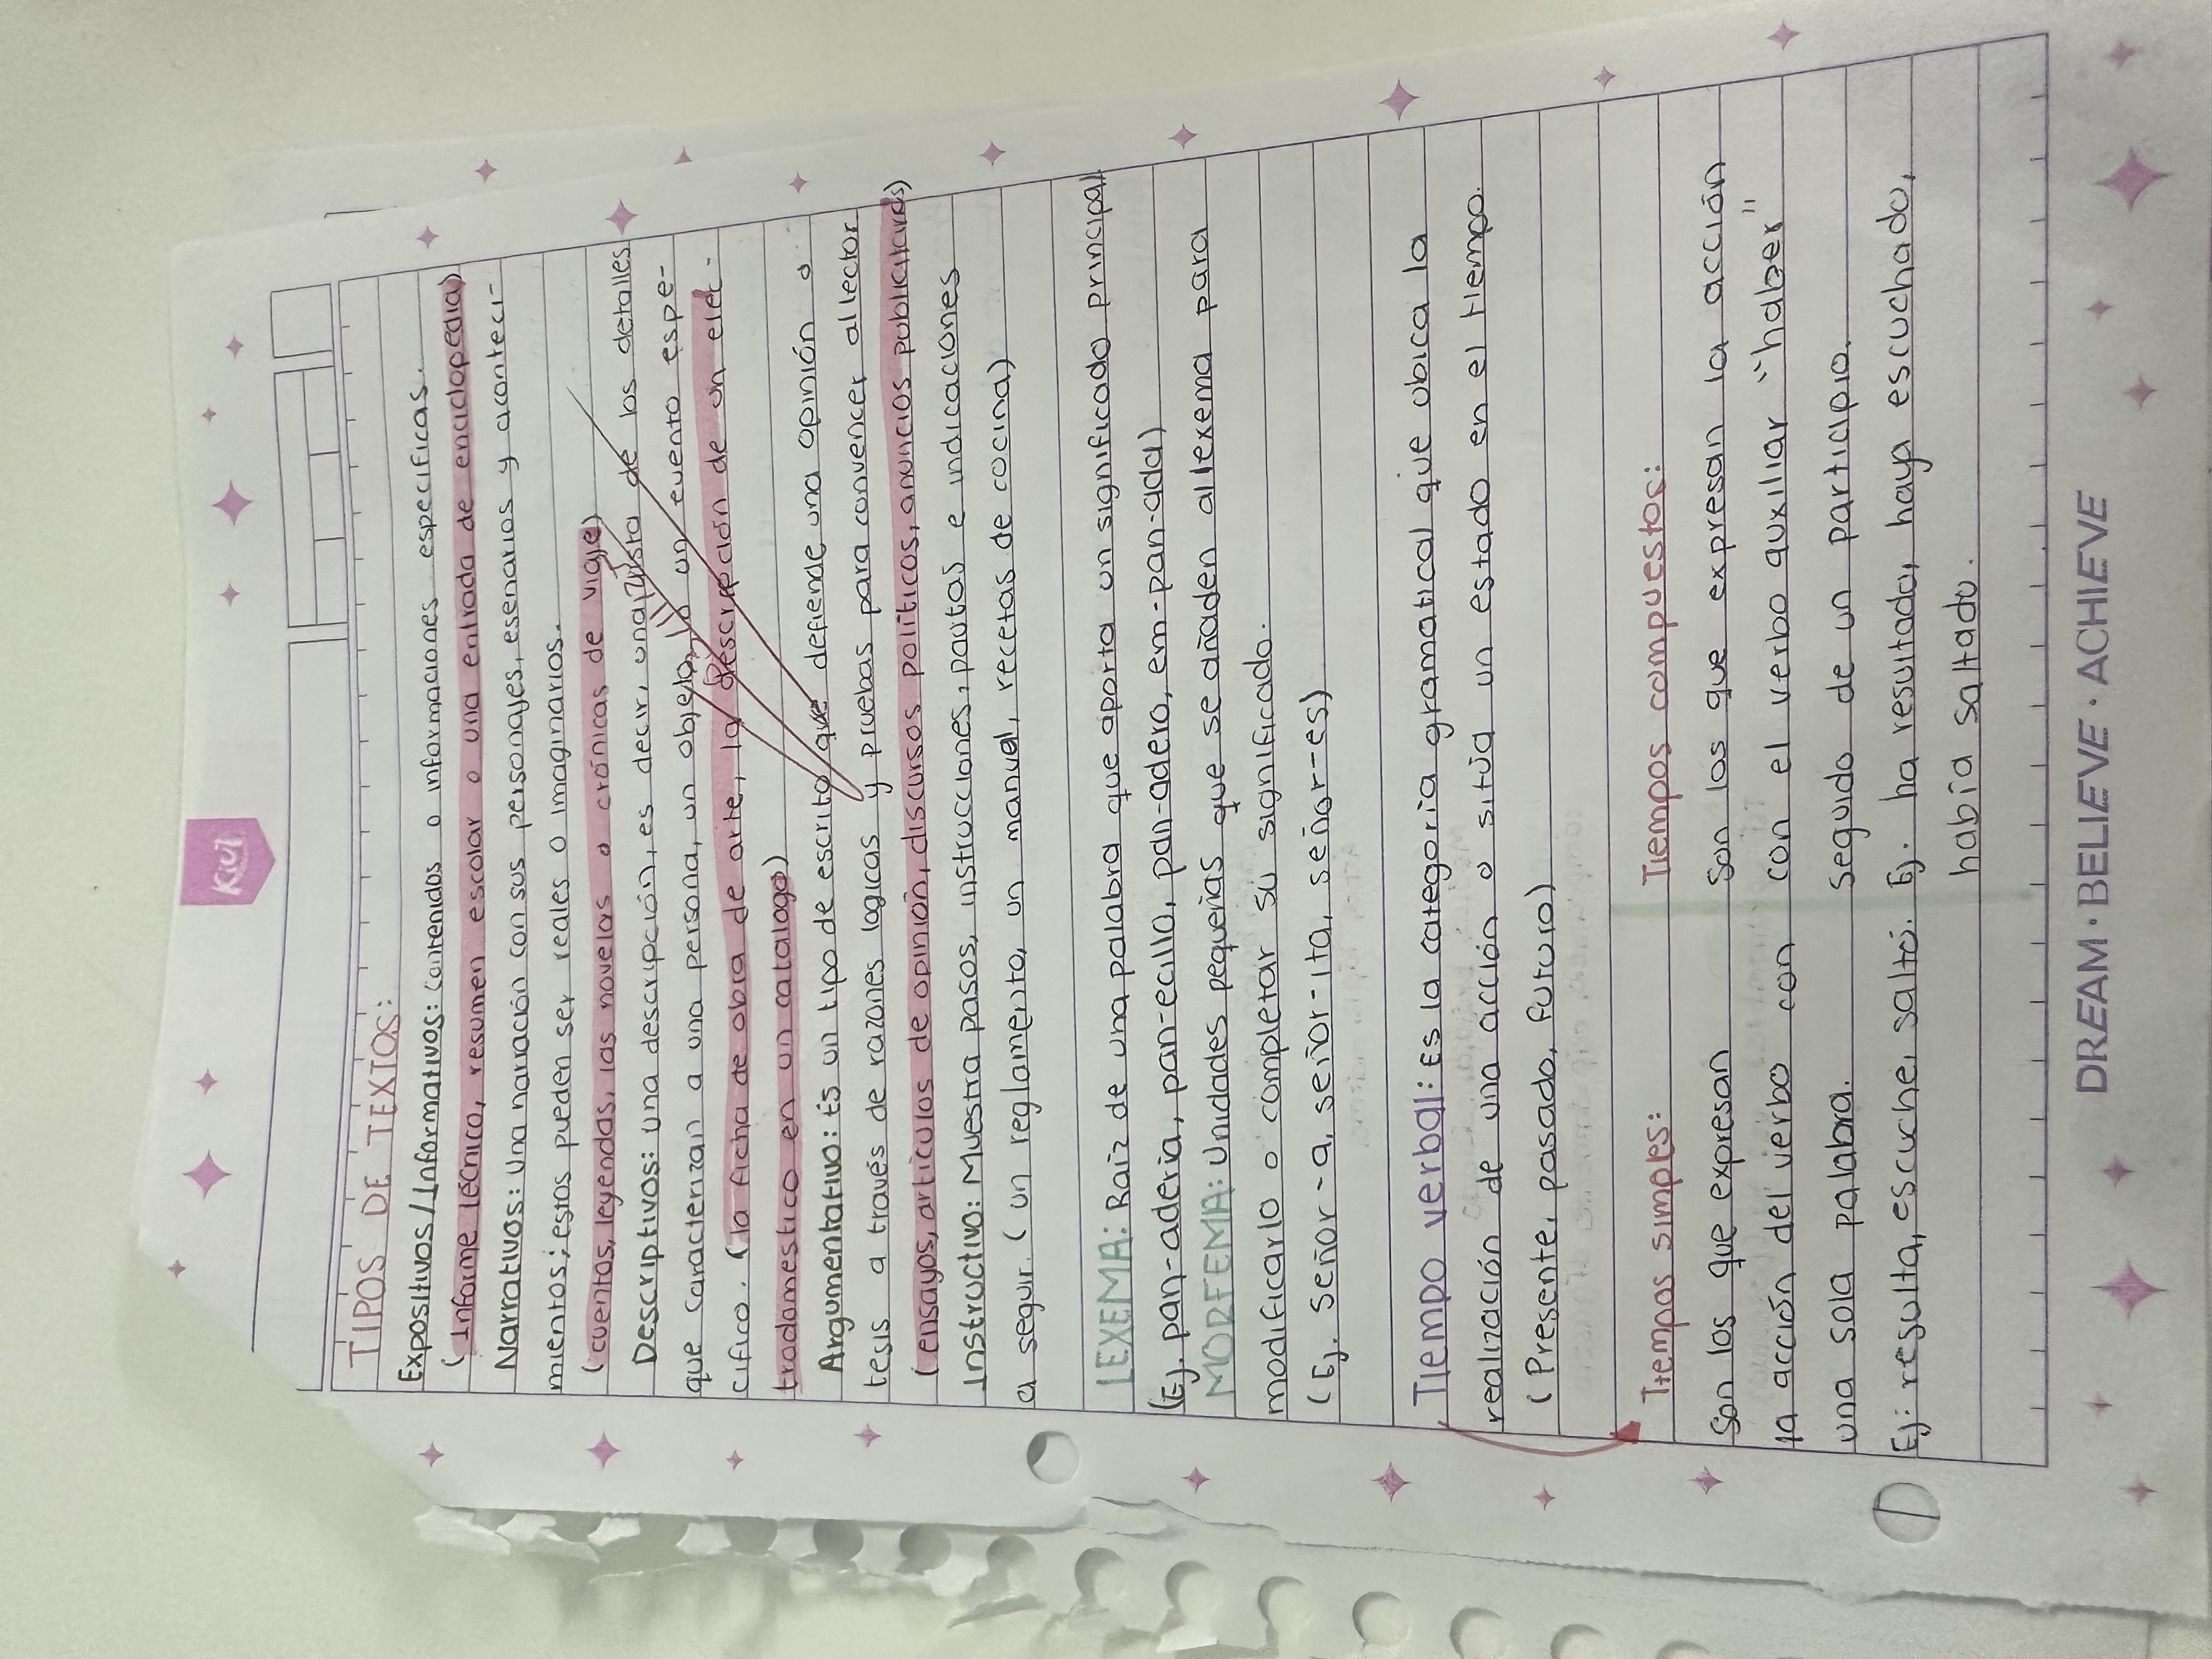 Kiut
TIPOS DE TEXTOS:
Expositivos/Informativos: contenidos o informaciones especificas.
(Informe técnico, resumen escolar o una entrada de enciclopedia)
Narrativos: Una narración con sus personajes, esenarios y aconteci-
mientos; estos pueden ser reales o imaginarios.
(cuentos, leyendas, las novelas o crónicas de viaje)
Descriptivos: una descripción, es decir, una lista de los detalles
que caracterizan a una persona, un objeto, un evento espe-
cífico. (la ficha de obra de arte, la descripción de un elec-
trodomestico en un catalogo)
Argumentativo: Es un tipo de escrito que defiende una opinión o
tesis a través de razones logicas y pruebas para convencer al lector
(ensayos, articulos de opinión, discursos politicos, anuncios publicitarios)
Instructivo: Muestra pasos, instrucciones, pautas e indicaciones
a seguir (un reglamento, un manual, recetas de cocina)
LEXEMA: Raiz de una palabra que aporta un significado principal
(Ej. pan-aderia, pan-ecillo, pan-adero, em-pan-ada)
MORFEMA: Unidades pequeñas que se añaden al lexema para
modificarlo o completar su significado.
(Ej. señor-a, señor-ita, señor-es)
Tiempo verbal: Es la categoria gramatical que ubica la
realización de una acción o sitúa un estado en el tiempo.
(Presente, pasado, futuro)
Tiempos simples:
Son los que expresan
la acción del verbo con
una sola palabra.
Ej: resulta, escuche, saltó.
Tiempos compuestos:
Son los que expresan la acción
con el verbo auxiliar "haber"
seguido de un participio.
Ej. ha resultado, haya escuchado,
habia saltado.
DREAM · BELIEVE · ACHIEVE